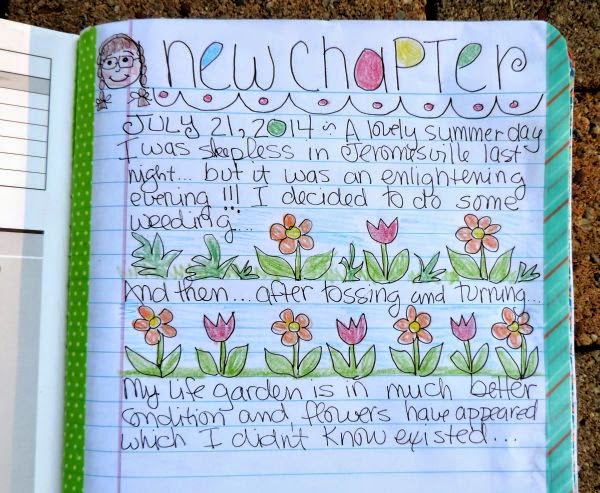 new chapter
JULY 21, 2014 ~ A lovely summer day
I was sleepless in Jeromesville last
night... but it was an enlightening
evening !!! I decided to do some
weeding...
And then... after tossing and turning...
My life garden is in much better
condition and flowers have appeared
which I didn't know existed....